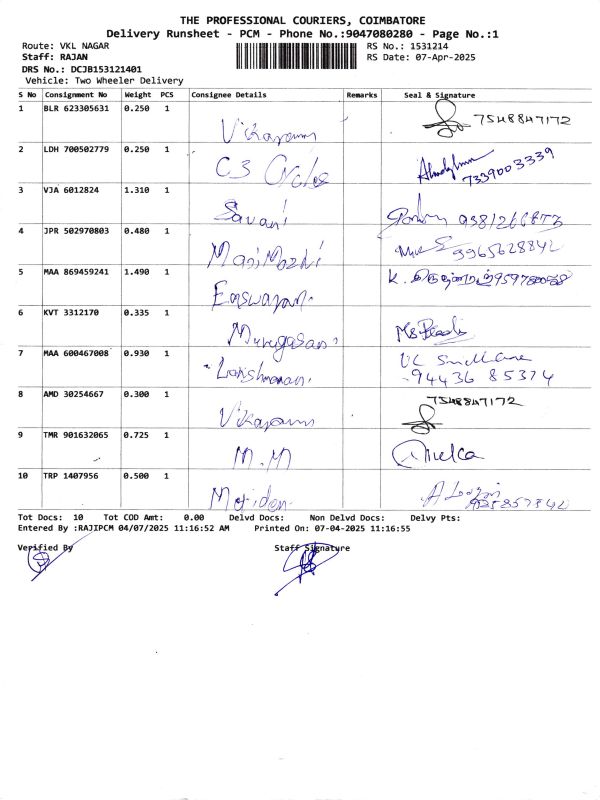 THE PROFESSIONAL COURIERS, COIMBATORE
Delivery Runsheet - PCM - Phone No.:9047080280 - Page No.:1
Route: VKL NAGAR RS No.: 1531214
Staff: RAJAN RS Date: 07-Apr-2025
DRS No.: DCJB153121401
Vehicle: Two Wheeler Delivery
S No Consignment No Weight PCS Consignee Details Remarks Seal & Signature
1 BLR 623305631 0.250 1 7548847172
2 LDH 700502779 0.250 1 C3 Cycles 7339003339
3 VJA 6012824 1.310 1 Savani
4 JPR 502970803 0.480 1 9965628842
5 MAA 869459241 1.490 1 Easwaran.
6 KVT 3312170 0.335 1 Murugasan.
7 MAA 600467008 0.930 1 Lakshmanan.
94436 85374
8 AMD 30254667 0.300 1 7548847172
9 TMR 901632065 0.725 1 M.M
10 TRP 1407956 0.500 1
Tot Docs: 10 Tot COD Amt: 0.00 Delvd Docs: Non Delvd Docs: Delvy Pts:
Entered By :RAJIPCM 04/07/2025 11:16:52 AM Printed On: 07-04-2025 11:16:55
Verified By Staff Signature